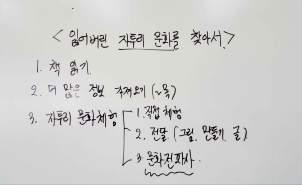 <잃어버린 자투리 문화를 찾아서>
1. 책 읽기
2. 더 많은 정보 가져오기 (~목)
3. 자투리 문화체험
1. 직접체험
2. 전달 (그림, 만들기, 글)
3. 문화전파사.